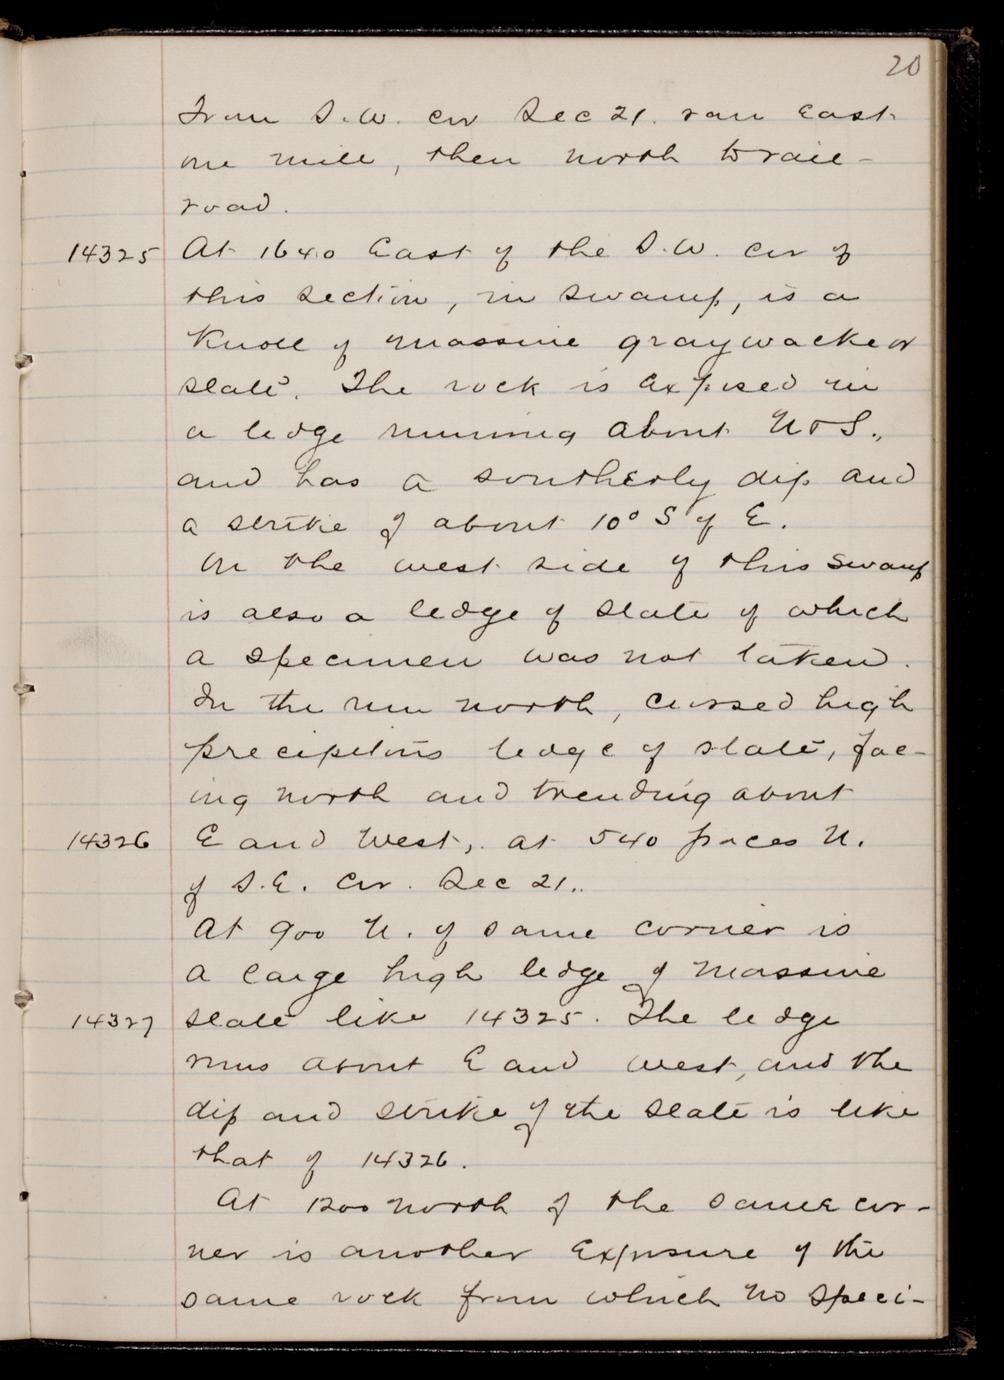 20
From S.W. cor Sec 21. ran East
one mile, then north to rail-
road.
14325 At 1640 East of the S.W. cor of
this section, in swamp, is a
knoll of massive graywacke or
slate. The rock is exposed in
a ledge running about N & S.,
and has a southerly dip and
a strike of about 10° S of E.
On the west side of this swamp
is also a ledge of slate of which
a specimen was not taken.
In the run north, crossed high
precipitous ledge of slate, fac-
ing north and trending about
14326 E and West, at 540 paces N.
of S.E. cor. Sec 21..
At 900 N. of same corner is
a large high ledge of massive
14327 slate like 14325. The ledge
runs about E and west, and the
dip and strike of the slate is like
that of 14326.
At 1200 north of the same cor-
ner is another exposure of the
same rock from which no speci-